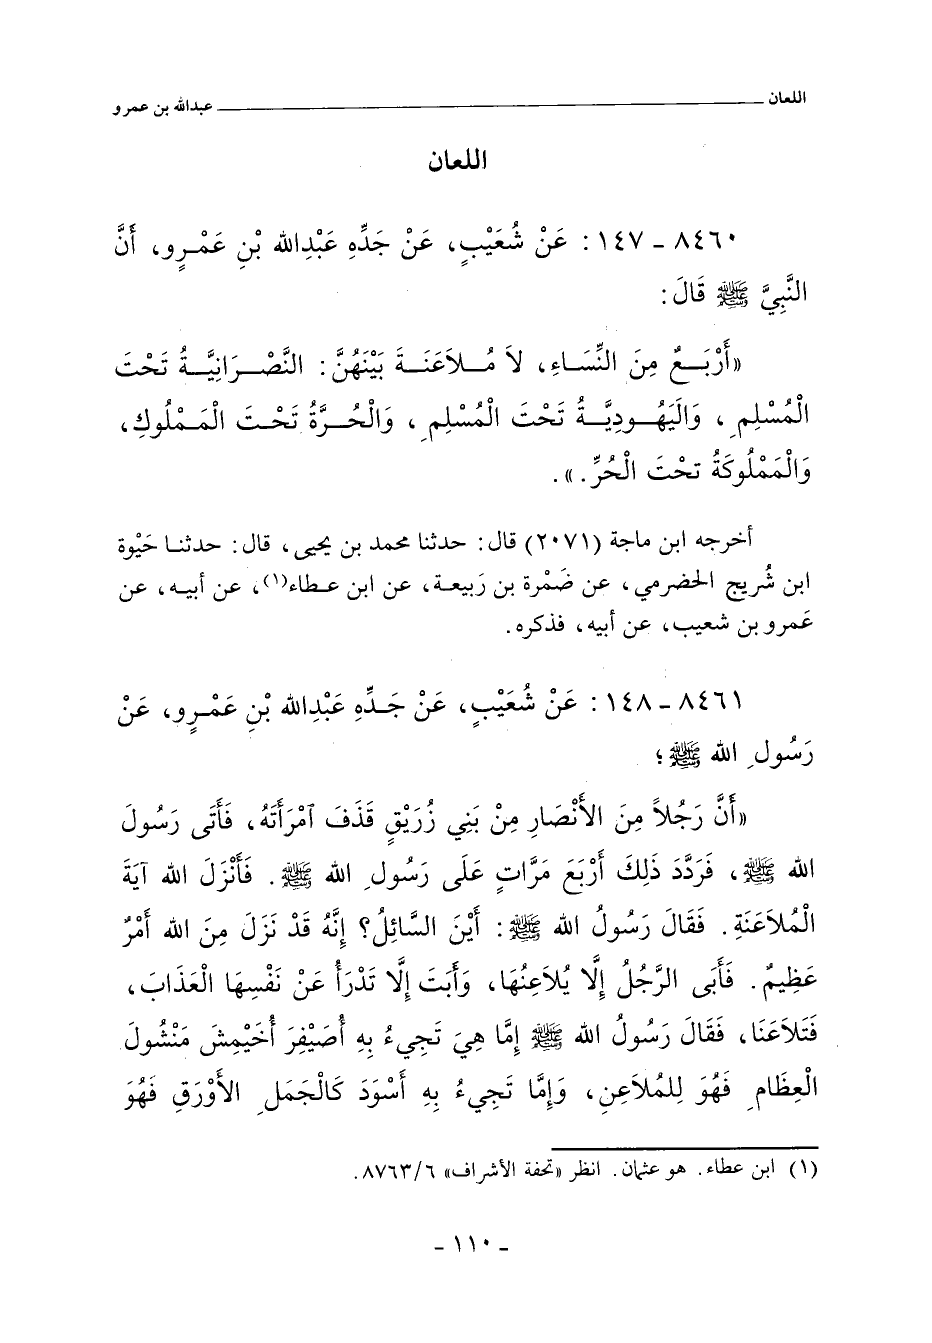 اللعان ــــــــــــــــــــ عبدالله بن عمرو
اللعان
٨٤٦٠ - ١٤٧ : عَنْ شُعَيْبٍ، عَنْ جَدِّهِ عَبْدِالله بْنِ عَمْرٍو، أَنَّ
النَّبِيَّ ﷺ قَالَ:
«أَرْبَعٌ مِنَ النِّسَاءِ، لاَ مُلاَعَنَةَ بَيْنَهُنَّ: النَّصْرَانِيَّةُ تَحْتَ
الْمُسْلِمِ، وَالْيَهُودِيَّةُ تَحْتَ الْمُسْلِمِ، وَالْحُرَّةُ تَحْتَ الْمَمْلُوكِ،
وَالْمَمْلُوكَةُ تحْتَ الْحُرِّ.».
أخرجه ابن ماجة (٢٠٧١) قال: حدثنا محمد بن يحيى، قال: حدثنا حَيْوة
ابن شُريج الحضرمي، عن ضَمْرة بن رَبيعة، عن ابن عطاء(١)، عن أبيه، عن
عَمرو بن شعيب، عن أبيه، فذكره.
٨٤٦١ - ١٤٨ : عَنْ شُعَيْبٍ، عَنْ جَدِّهِ عَبْدِالله بْنِ عَمْرٍو، عَنْ
رَسُولِ الله ﷺ؛
«أَنَّ رَجُلاً مِنَ الأَنْصَارِ مِنْ بَنِي زُرَيْقٍ قَذَفَ ٱمْرَأَتَهُ، فَأَتَى رَسُولَ
الله ﷺ، فَرَدَّدَ ذَلِكَ أَرْبَعَ مَرَّاتٍ عَلَى رَسُولِ الله ﷺ. فَأَنْزَلَ الله آيَةَ
الْمُلاَعَنَةِ. فَقَالَ رَسُولُ الله ﷺ: أَيْنَ السَّائِلُ؟ إِنَّهُ قَدْ نَزَلَ مِنَ الله أَمْرٌ
عَظِيمٌ. فَأَبَى الرَّجُلُ إِلَّا يُلاَعِنُهَا، وَأَبَتَ إِلَّا تَدْرَأُ عَنْ نَفْسِهَا الْعَذَابَ،
فَتَلاَعَنَا، فَقَالَ رَسُولُ الله ﷺ إِمَّا هِيَ تَجِيءُ بِهِ أُصَيْفِرَ أُخَيْمِشَ مَنْشُولَ
الْعِظَامِ فَهُوَ لِلمُلاَعِنِ، وَإِمَّا تَجِيءُ بِهِ أَسْوَدَ كَالْجَمَلِ الأَوْرَقِ فَهُوَ
(١) ابن عطاء. هو عثمان. انظر «تحفة الأشراف» ٨٧٦٣/٦.
- ١١٠ -